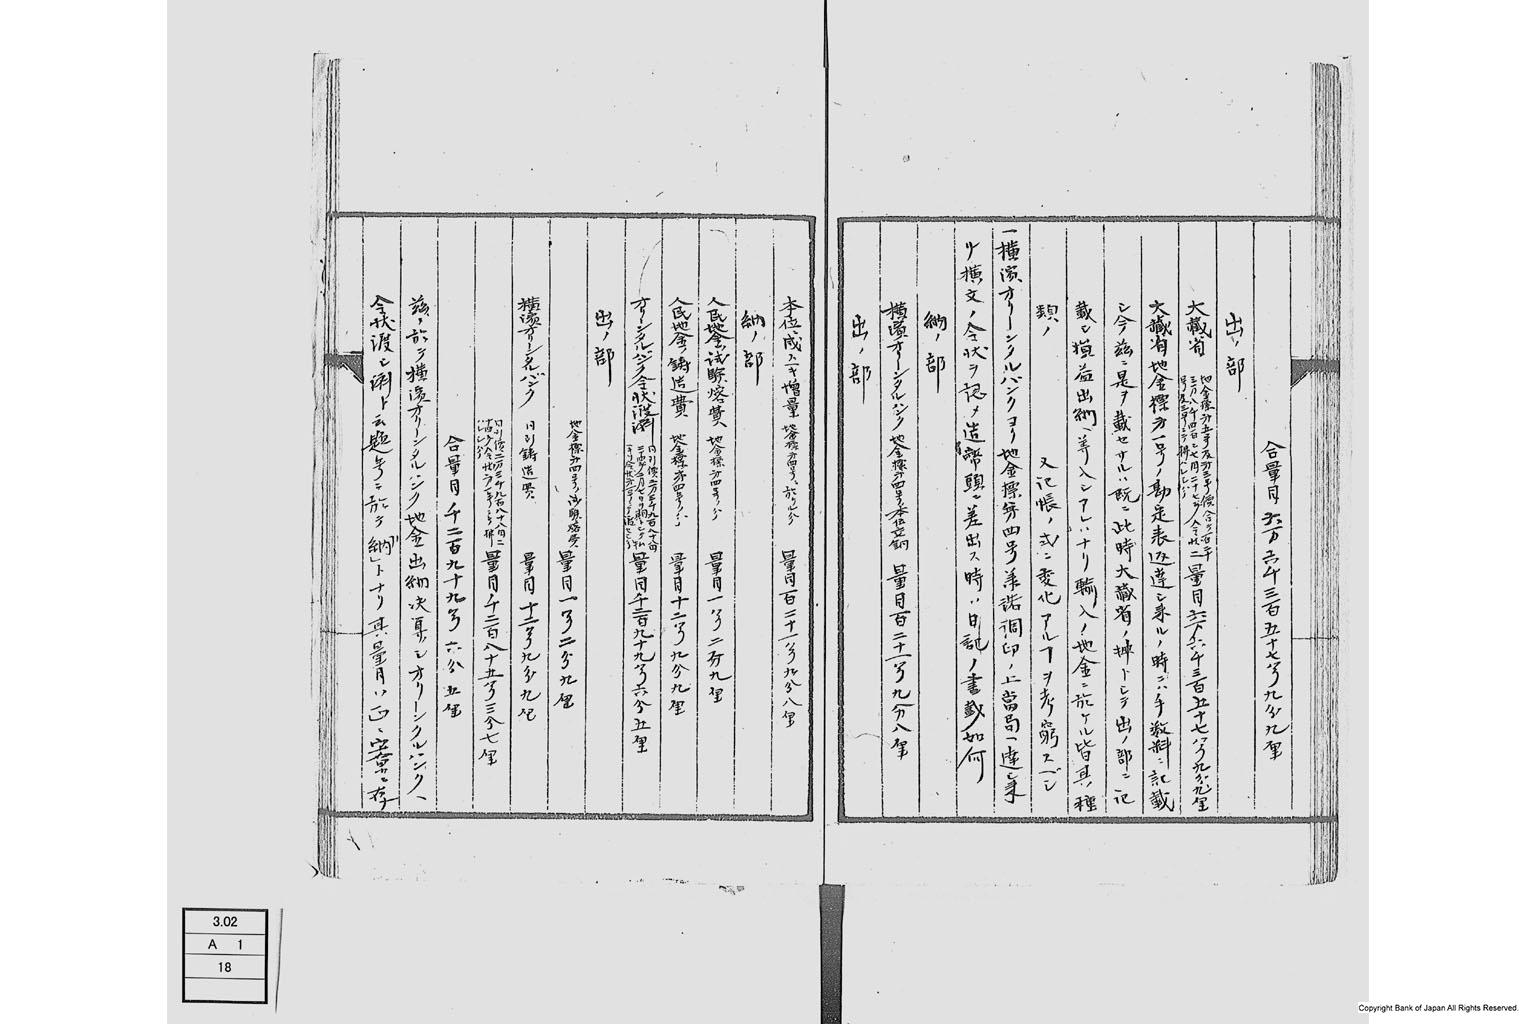 合量目六万六千三百五十七匁九分九厘
出ノ部
大蔵省 量目六万六千三百五十七匁九分九厘
大蔵省地金標第一号ノ勘定表返達シ来ルノ時ニハ手数料ニ記載
シ今茲ニ是ヲ載セサルハ既ニ此時大蔵省ノ押トシテ出ノ部ニ記
載シ損益出納ヘ算入シアレハナリ輸入ノ地金ニ於ケル皆其種
類ノ 又記帳ノ式ニ変化アルヿヲ考窮スベシ
一横濱オリーンタルバンクヨリ地金標第四号承諾調印ノ上當局ヘ達シ来
リ横文ノ令状ヲ認メ造幣頭ニ差出ス時ハ日記ノ書載如何
納ノ部
横濱オリーンタルバンク地金標第四号本位立銅 量目百二十一匁九分八厘
出ノ部
本位ニ成スニ付増量 地金標第四号ニ於ル分 量目百二十一匁九分八厘
納ノ部
人民地金試験熔費 地金標第四号ノ分 量目一匁二分九厘
人民地金ノ鋳造費 地金標第四号ノ分 量目十二匁九分九厘
オリーンタルバンク令状渡済 量目千二百九十九匁六分五厘
出ノ部
地金標第四号ノ試験熔費 量目一匁二分九厘
横濱オリーンタルバンク 同引鋳造費 量目十二匁九分九厘
量目千二百八十五匁三分七厘
合量目千二百九十九匁六分五厘
茲ニ於テ横濱オリーンタルバンク地金出納決算シオリーンタルバンクヘ
令状渡シ済ト云題号ニ於テ「納」トナリ其量目ハ正ニ安橐ニ存
3.02
A 1
18
Copyright Bank of Japan All Rights Reserved.